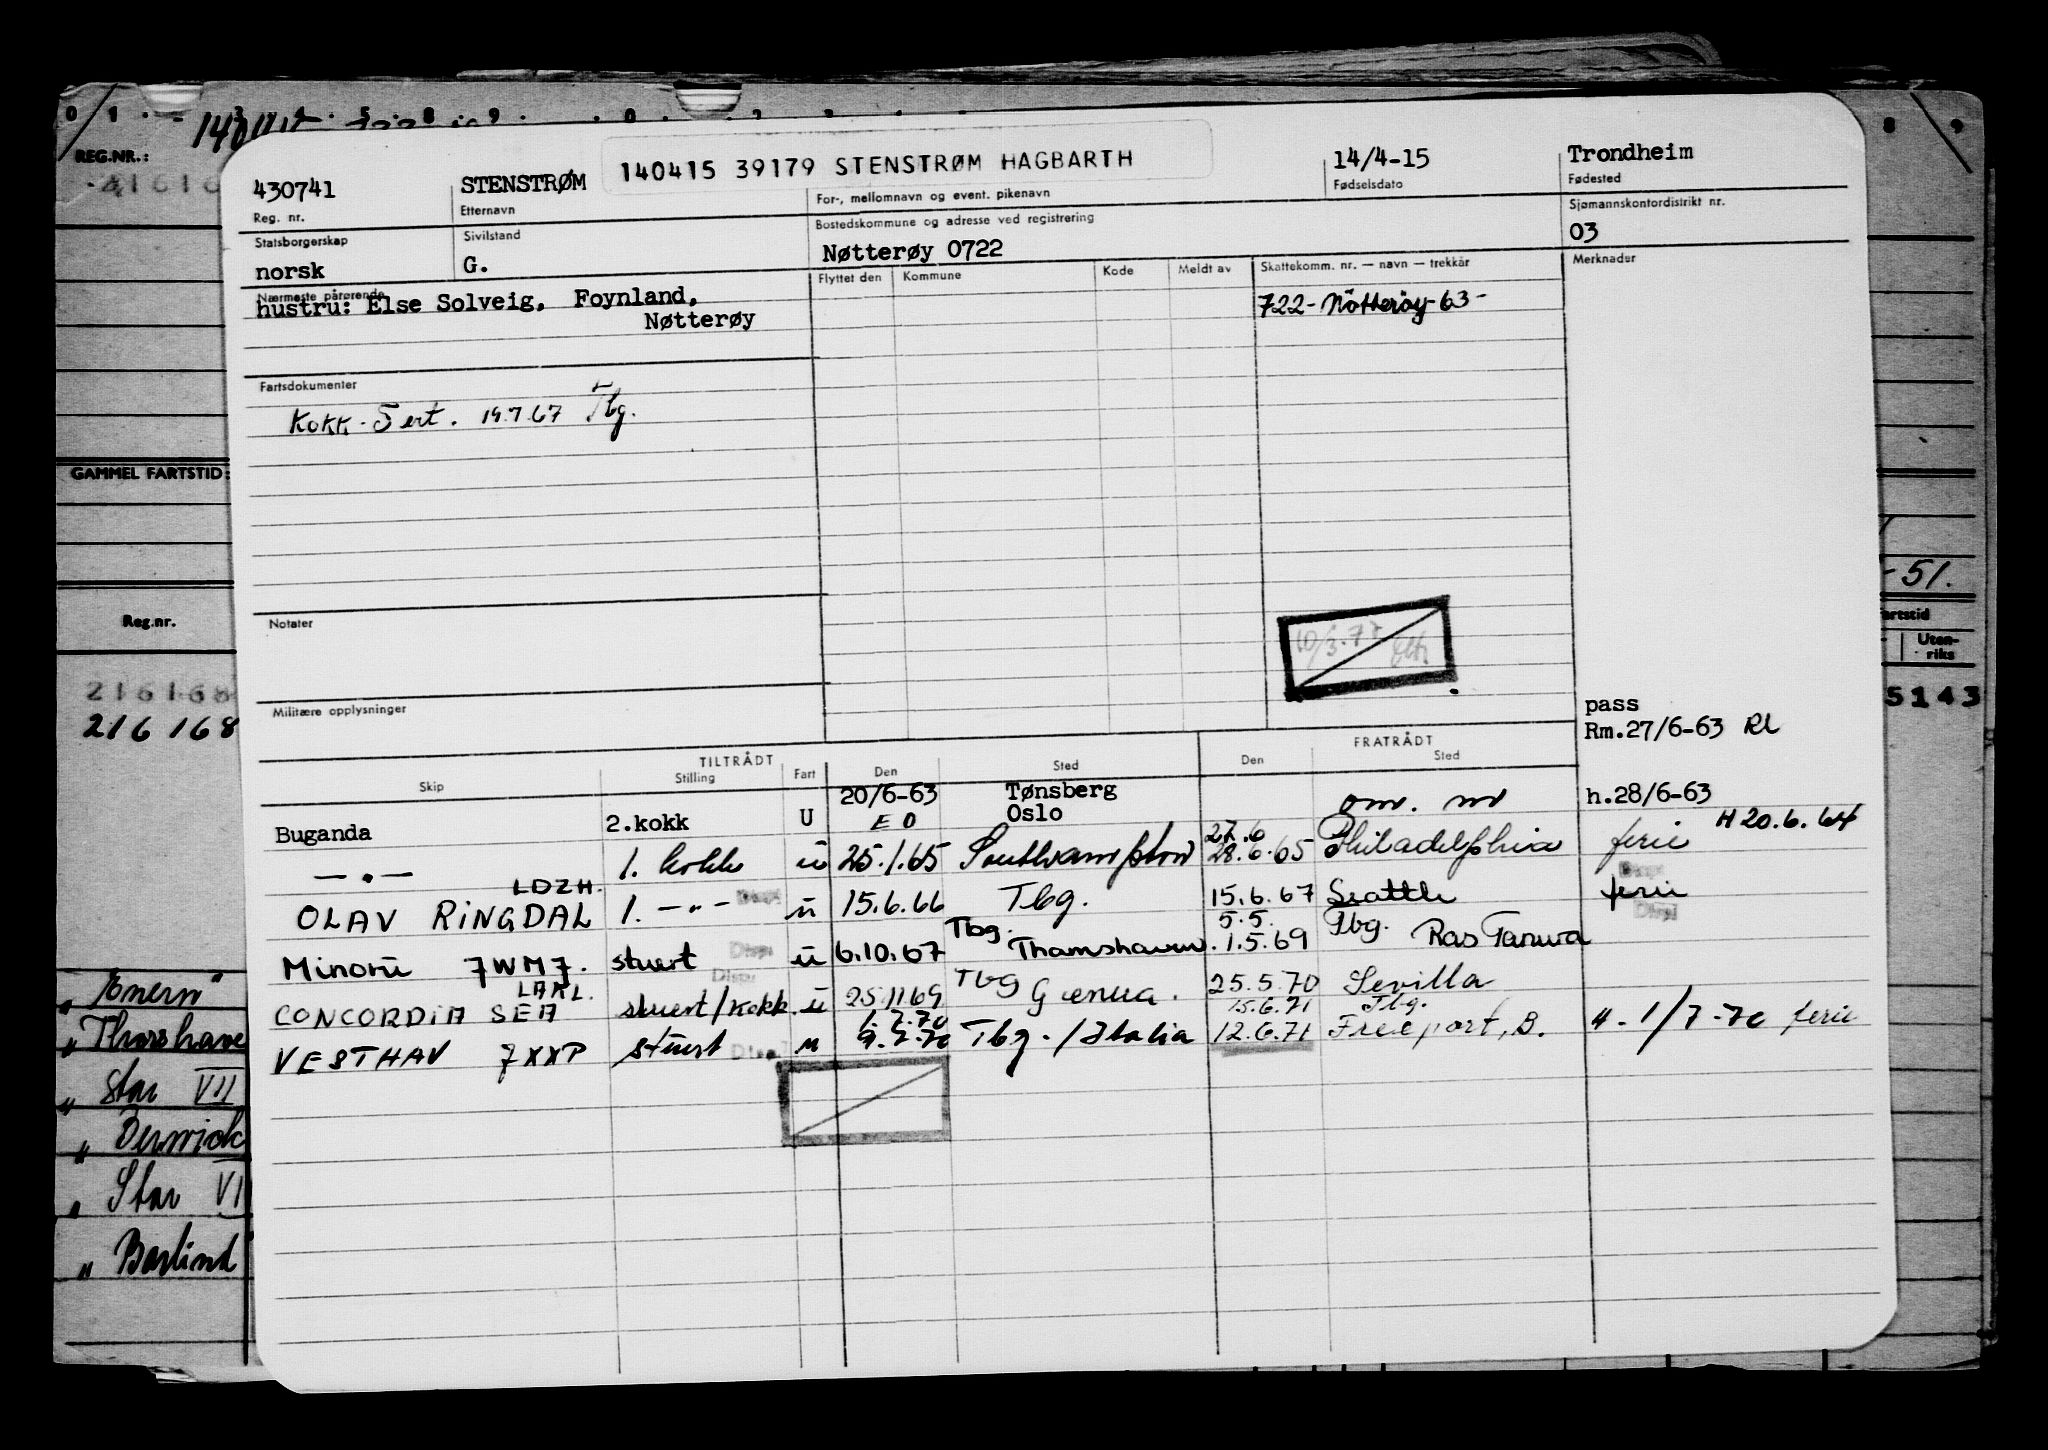 REG.NR.:
430741 STENSTRØM 140415 39179 STENSTRØM HAGBARTH 14/4-15 Trondheim
Reg. nr. Etternavn For-, mellomnavn og event. pikenavn Fødselsdato Fødested
Statsborgerskap Sivilstand Bostedskommune og adresse ved registrering Sjømannskontordistrikt nr.
norsk G. Nøtterøy 0722 03
Nærmeste pårørende Flyttet den Kommune Kode Meldt av Skattekomm. nr. — navn — trekkår Merknader
hustru: Else Solveig, Foynland, 722- Nøtterøy 63-
Nøtterøy
Fartsdokumenter
Kokk-Sert. 19.7.67 Tbg.
GAMMEL FARTSTID:
-51.
Reg.nr.
Notater
Uten-
riks
216168
216168
5143
Militære opplysninger
pass
Rm.27/6-63 RL
TILTRÅDT FRATRÅDT
Skip Stilling Fart Den Sted Den Sted
20/6-63 Tønsberg h.28/6-63
Buganda 2.kokk U E O Oslo H 20.6.64
27.6
—"— 1. kokk u 25.1.65 Southampton 28.6.65 Philadelphia ferie
LDZH.
OLAV RINGDAL 1. —"— u 15.6.66 Tbg. 15.6.67 Seattle ferie
Tbg. 5.5. Tbg.
Minoru 7WM7. stuert u 6.10.67 Thamshavn. 1.5.69 Ras Tanura
LAKL. Tbg
CONCORDIA SEA stuert/kokk u 25.11.69 Genua. 25.5.70 Sevilla
1.7.70 15.6.71 Tbg.
VESTHAV 7XXP stuert u 9.7.70 Tbg./Italia 12.6.71 Freeport, B. H-1/7-70 ferie
" Star VII
" Star VI
" Barlind